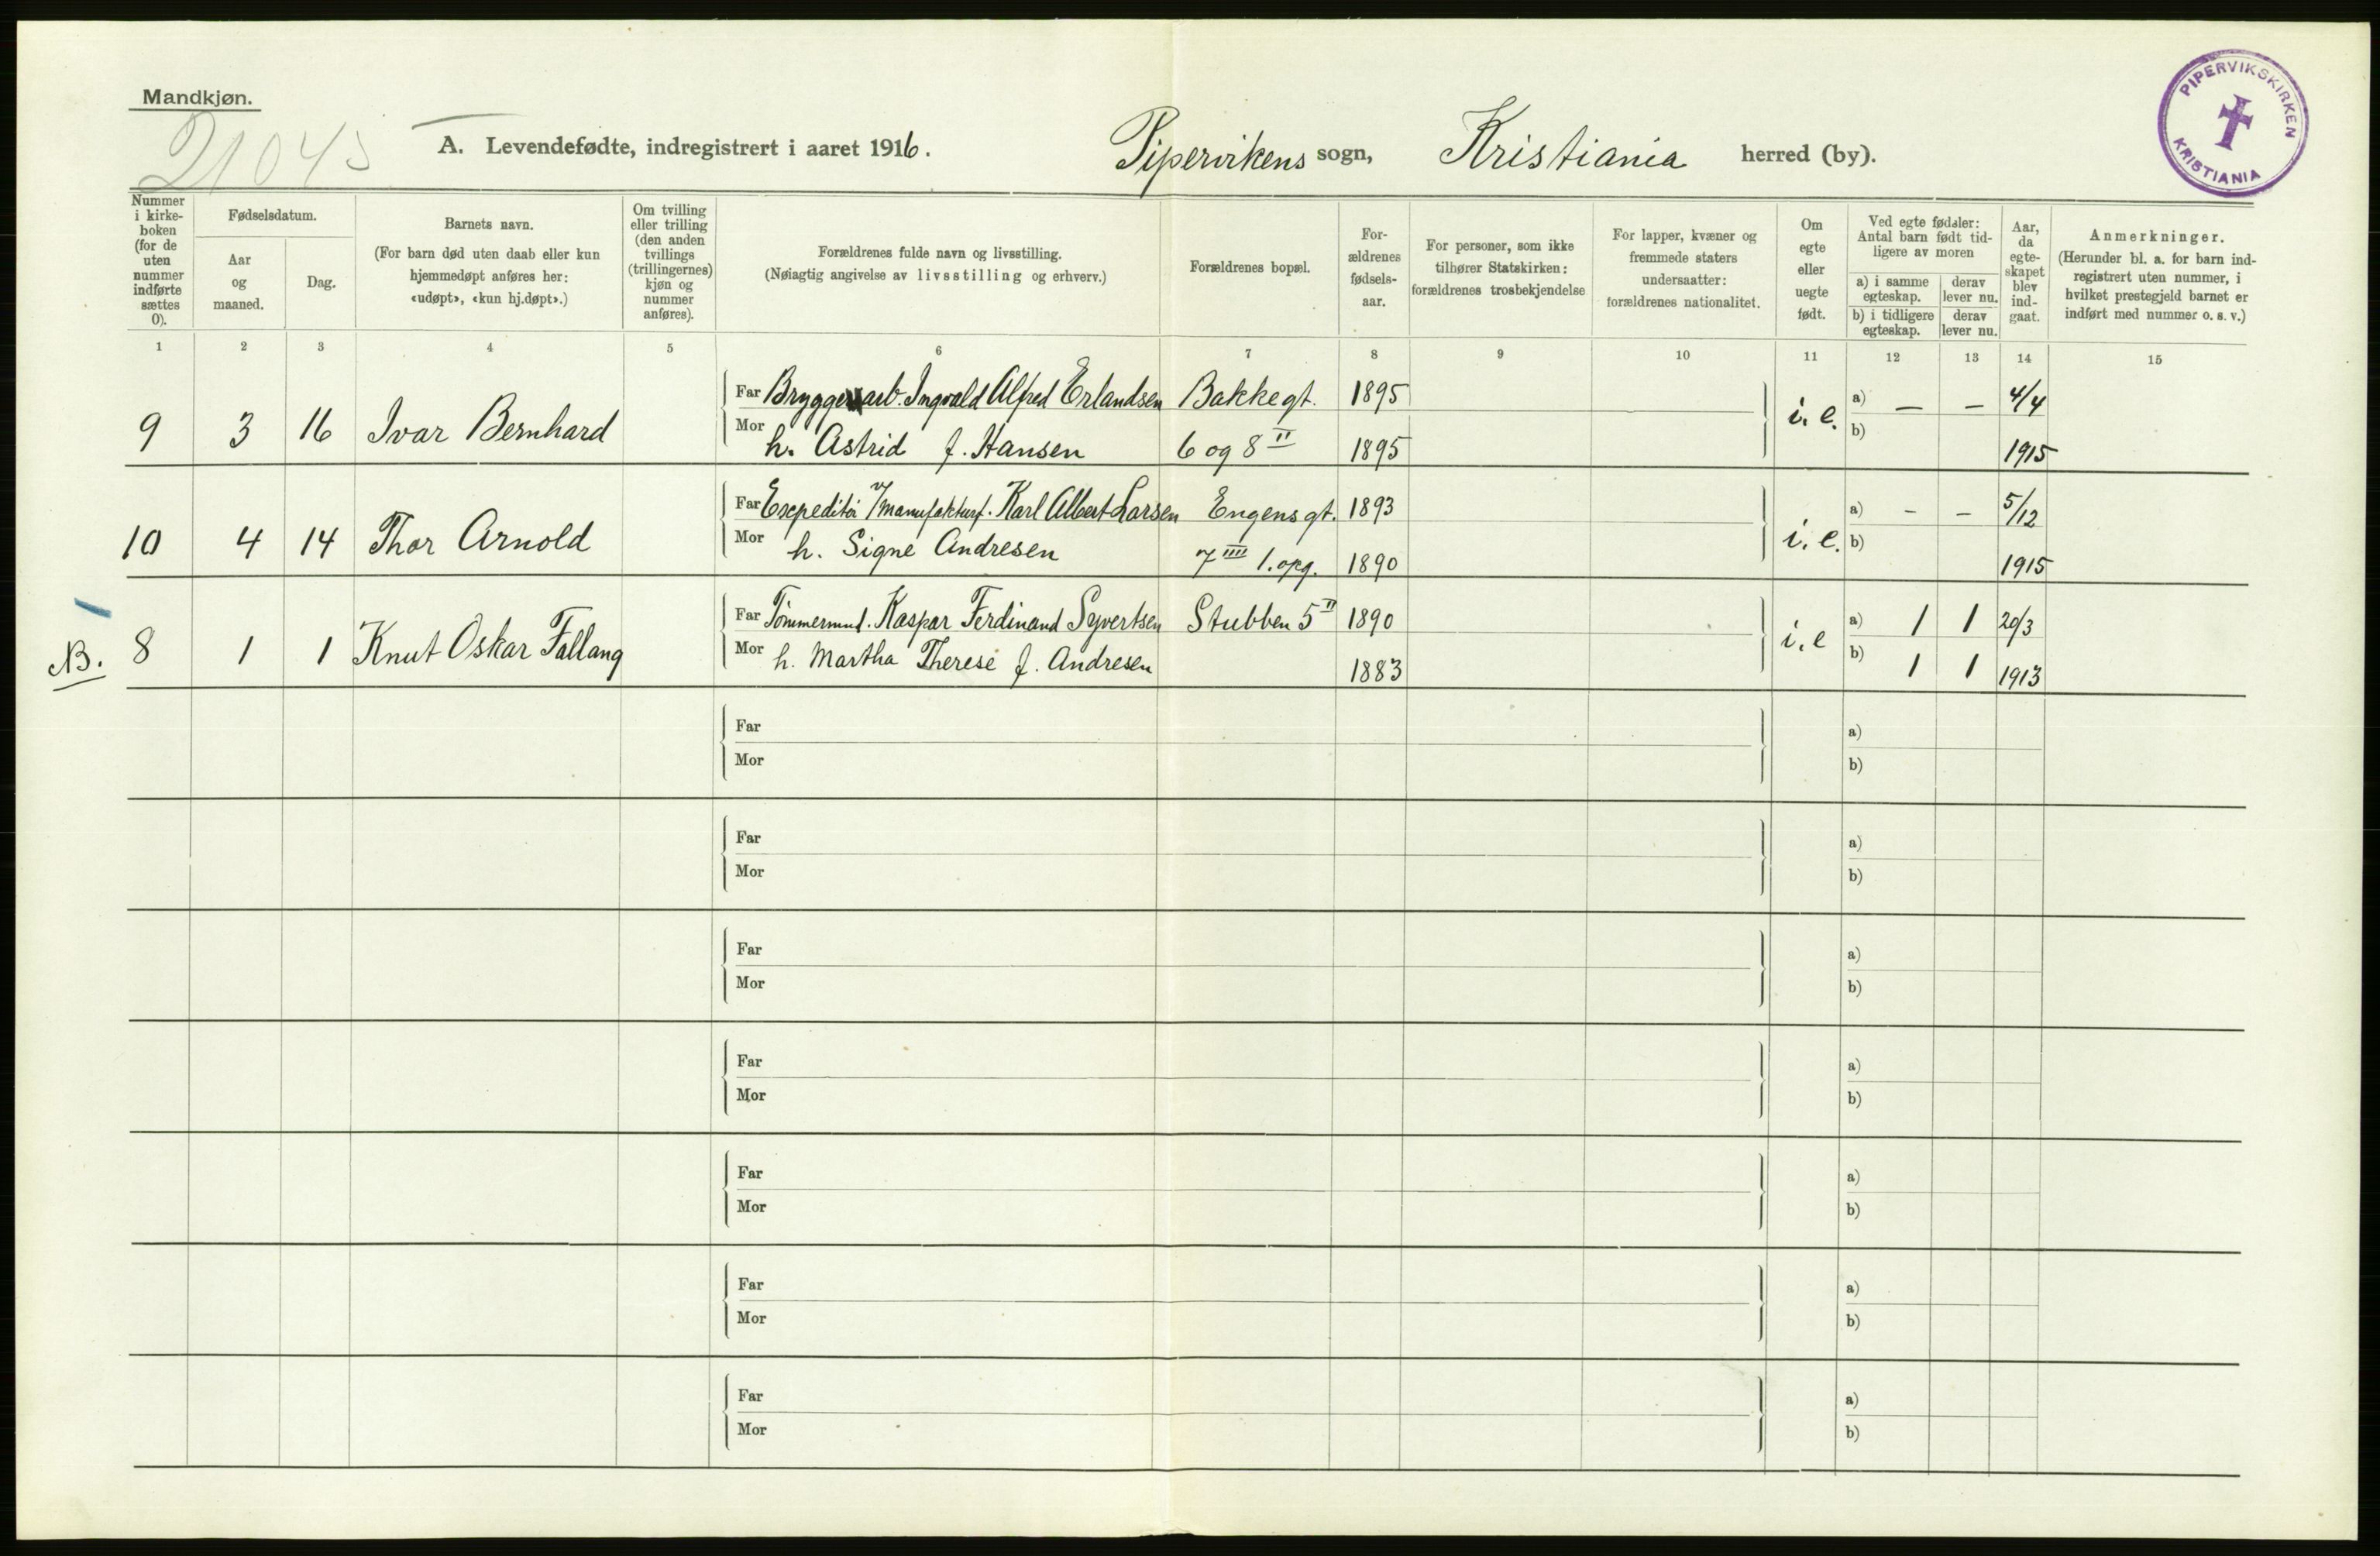 Mandkjøn.
21045
A. Levendefødte, indregistrert i aaret 1916. Pipervikens sogn, Kristiania herred (by).
PIPERVIKSKIRKEN KRISTIANIA
Nummer i kirkeboken (for de uten nummer indførte sættes 0).
Fødselsdatum.
Aar og maaned.
Dag.
Barnets navn.
(For barn død uten daab eller kun hjemmedøpt anføres her: «udøpt», «kun hj.døpt».)
Om tvilling eller trilling (den anden tvillings (trillingernes) kjøn og nummer anføres).
Forældrenes fulde navn og livsstilling.
(Nøiagtig angivelse av livsstilling og erhverv.)
Forældrenes bopæl.
For-ældrenes fødsels-aar.
For personer, som ikke tilhører Statskirken: forældrenes trosbekjendelse
For lapper, kvæner og fremmede staters undersaatter: forældrenes nationalitet.
Om egte eller uegte født.
Ved egte fødsler: Antal barn født tid-ligere av moren
a) i samme egteskap. derav lever nu.
b) i tidligere egteskap. derav lever nu.
Aar, da egte-skapet blev ind-gaat.
Anmerkninger.
(Herunder bl. a. for barn ind-registrert uten nummer, i hvilket prestegjeld barnet er indført med nummer o. s. v.)
1 2 3 4 5 6 7 8 9 10 11 12 13 14 15
Far Bryggeriarb. Ingvald Alfred Erlandsen Bakkegt. 1895 a) — — 4/4
9 3 16 Ivar Bernhard i. e.
Mor h. Astrid f. Hansen 6 og 8 II 1895 b) 1915
Far Expeditør i/ manufakturf. Karl Albert Larsen Engens gt. 1893 a) - - 5/12
10 4 14 Thor Arnold i. e.
Mor h. Signe Andresen 7 IIII 1. opg. 1890 b) 1915
Far Tømmermd. Kaspar Ferdinand Syvertsen Stubben 5 II 1890 a) 1 1 20/3
NB. 8 1 1 Knut Oskar Fallang i. e
Mor h. Martha Therese f. Andresen 1883 b) 1 1 1913
Far a)
Mor b)
Far a)
Mor b)
Far a)
Mor b)
Far a)
Mor b)
Far a)
Mor b)
Far a)
Mor b)
Far a)
Mor b)